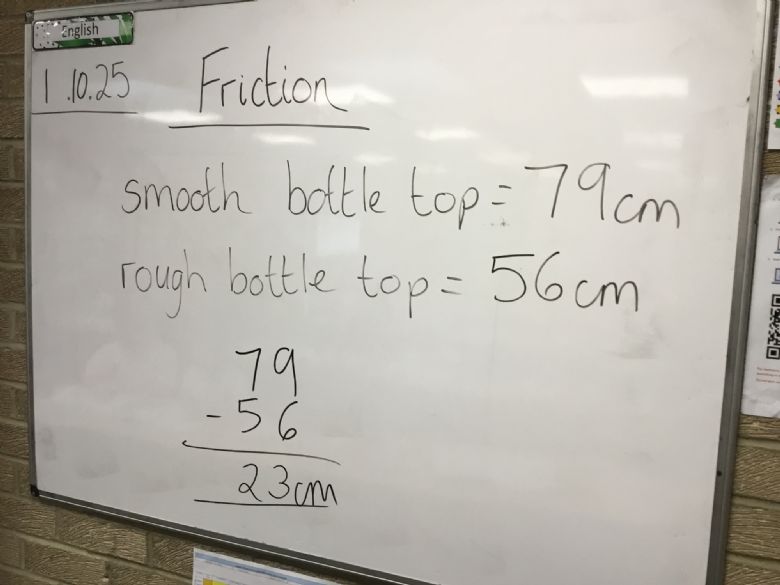 English
1.10.25 Friction
smooth bottle top = 79cm
rough bottle top = 56cm
79
- 56
23cm